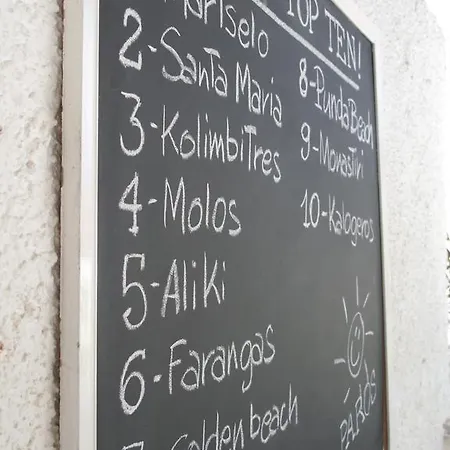 TOP TEN!
2-Santa Maria
3-Kolimbitres
4-Molos
5-Aliki
6-Farangas
7-Golden beach
8-Punda Beach
9-Monastiri
10-Kalogeros
PAROS